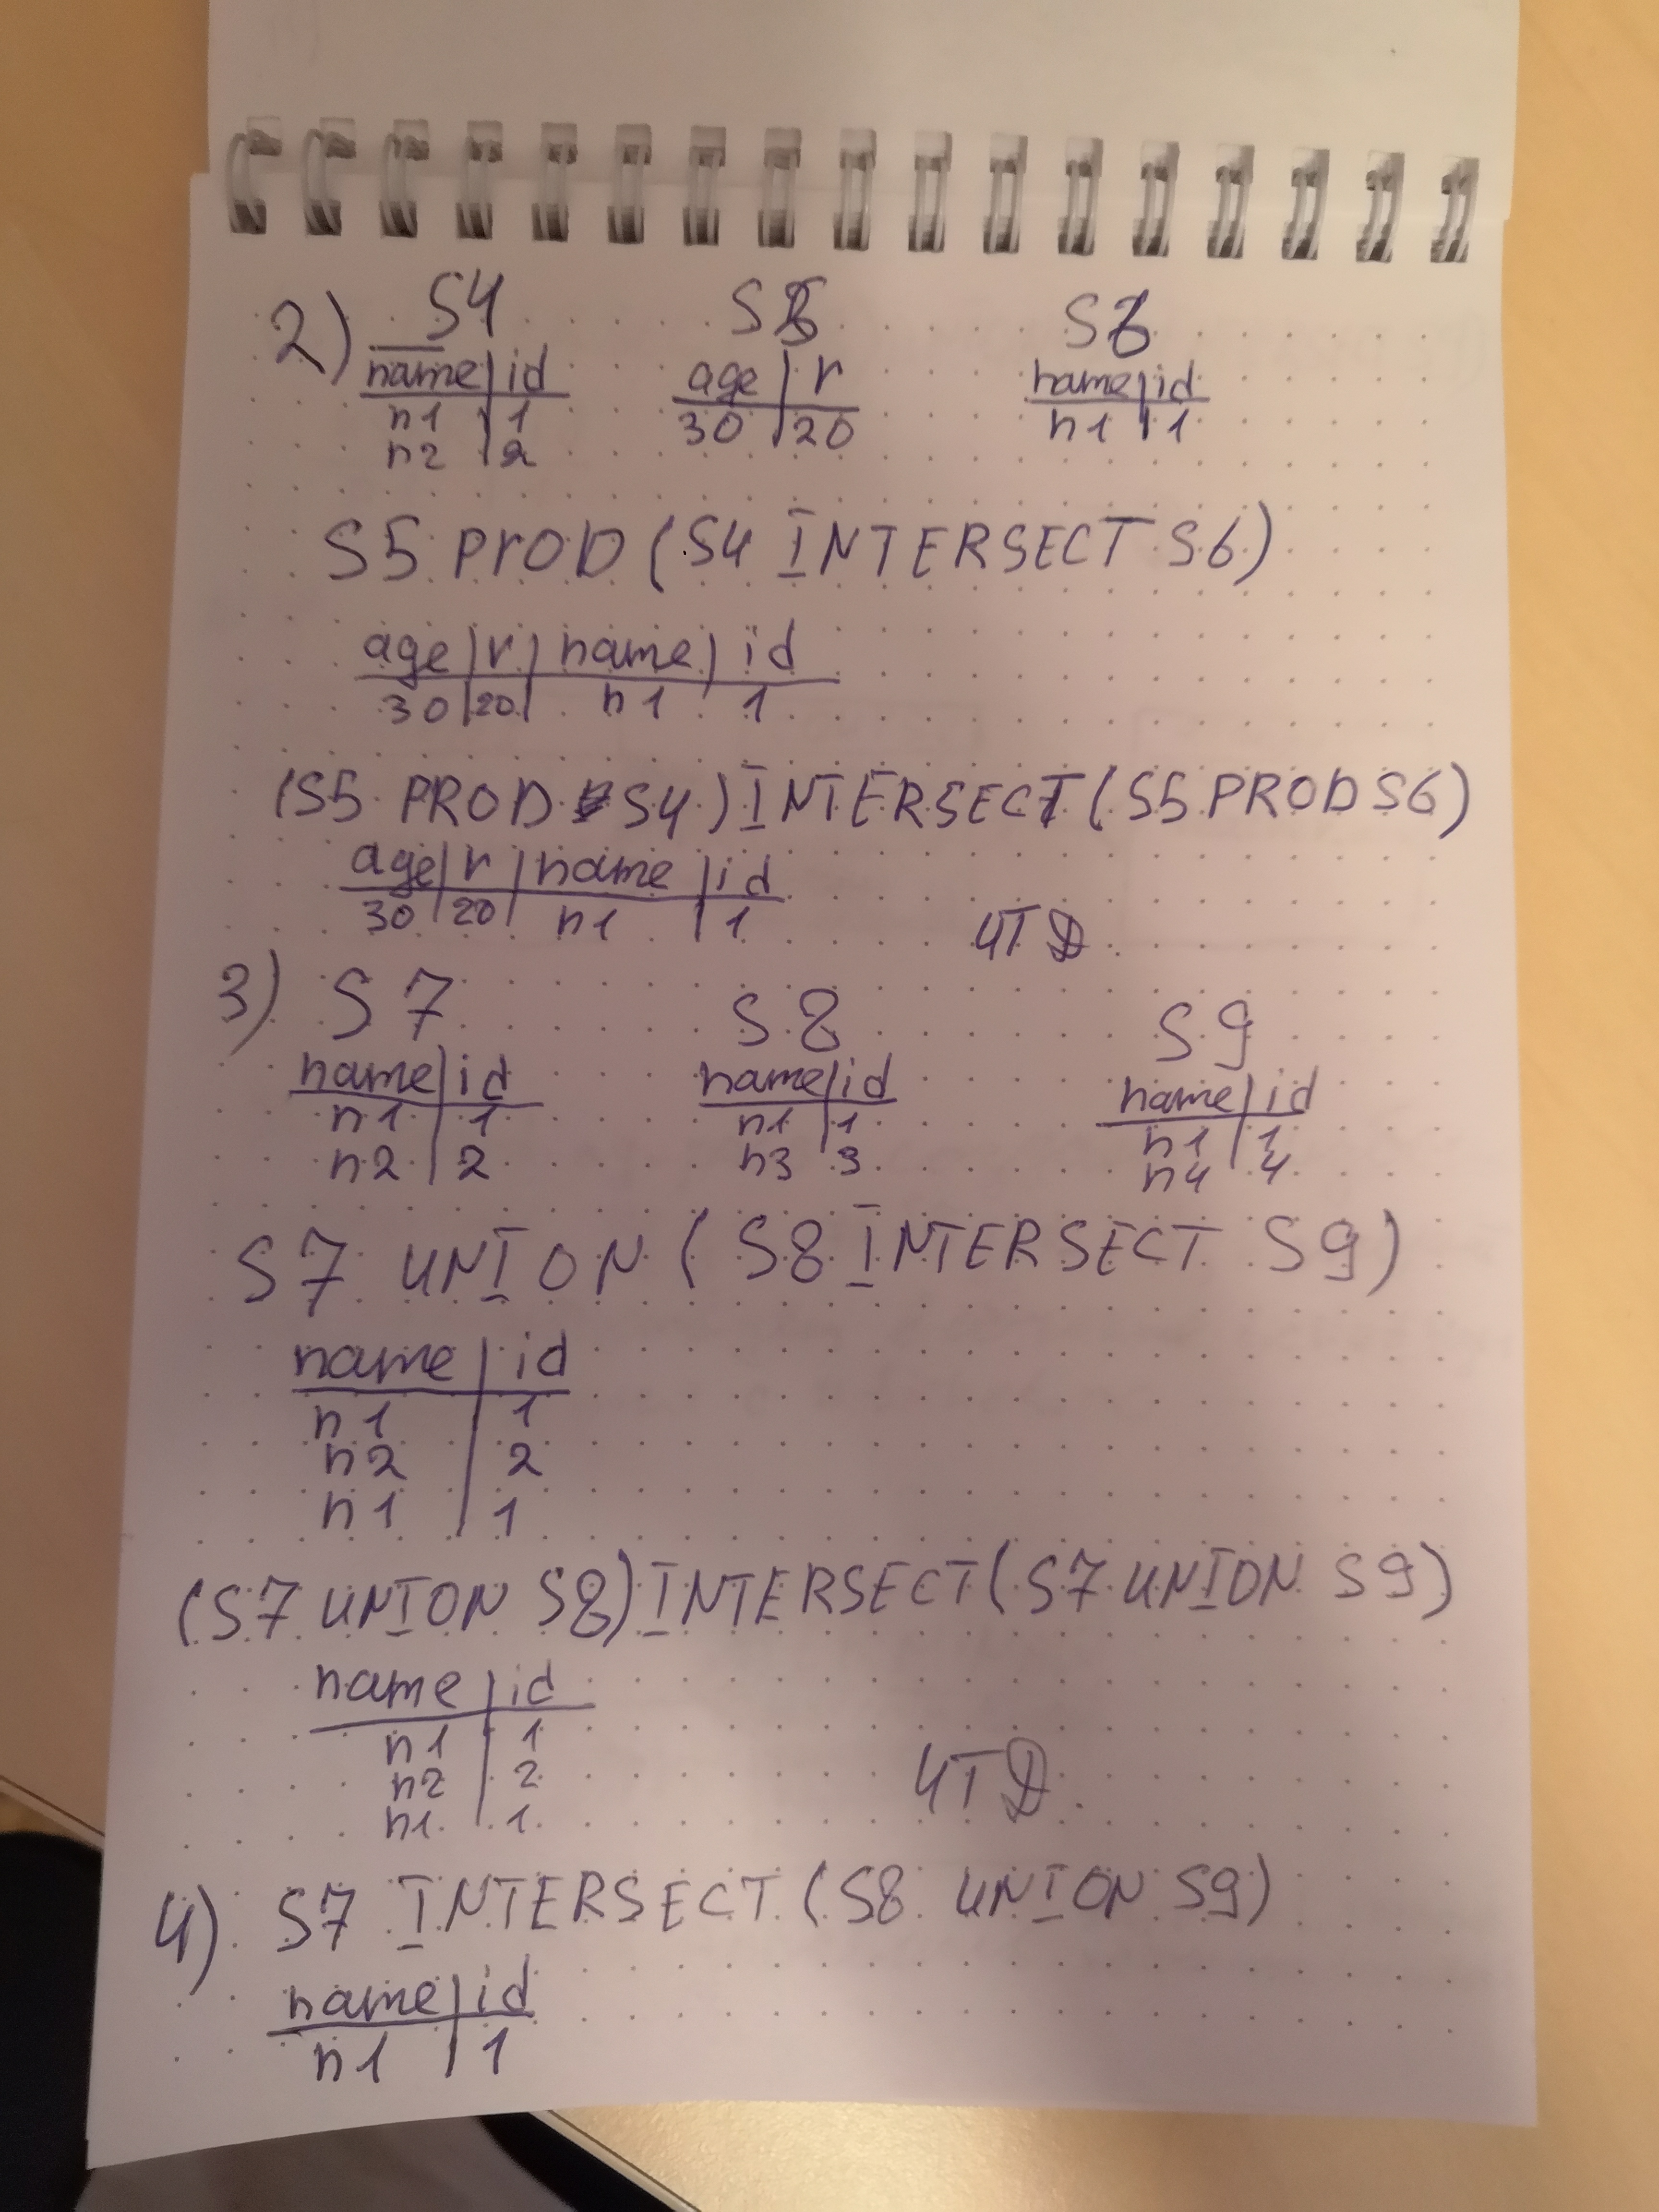 2) S4 S5 S6
name | id age | r name | id
n1 | 1 30 | 20 n1 | 1
n2 | 2
S5 PROD (S4 INTERSECT S6)
age | r | name | id
30 | 20 | n1 1
(S5 PROD S4) INTERSECT (S5 PROD S6)
age | r | name | id
30 | 20 | n1 | 1
ЧТД.
3) S7 S8 S9
name | id name | id name | id
n1 | 1 n1 | 1 n1 | 1
n2 | 2 n3 3 n4 4
S7 UNION (S8 INTERSECT S9)
name | id
n1 | 1
n2 | 2
n1 | 1
(S7 UNION S8) INTERSECT (S7 UNION S9)
name | id
n1 | 1
n2 | 2
n1 | 1
ЧТД.
4) S7 INTERSECT (S8 UNION S9)
name | id
n1 | 1